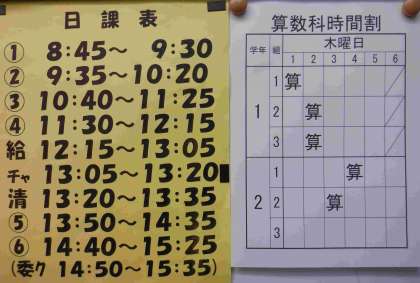 日課表
① 8:45～ 9:30
② 9:35～10:20
③ 10:40～11:25
④ 11:30～12:15
給 12:15～13:05
チャ 13:05～13:20
清 13:20～13:35
⑤ 13:50～14:35
⑥ 14:40～15:25
(委ク 14:50～15:35)
算数科時間割
学年 組 木曜日
1 2 3 4 5 6
1
1 算
2 算
3 算
2
1 算
2 算
3